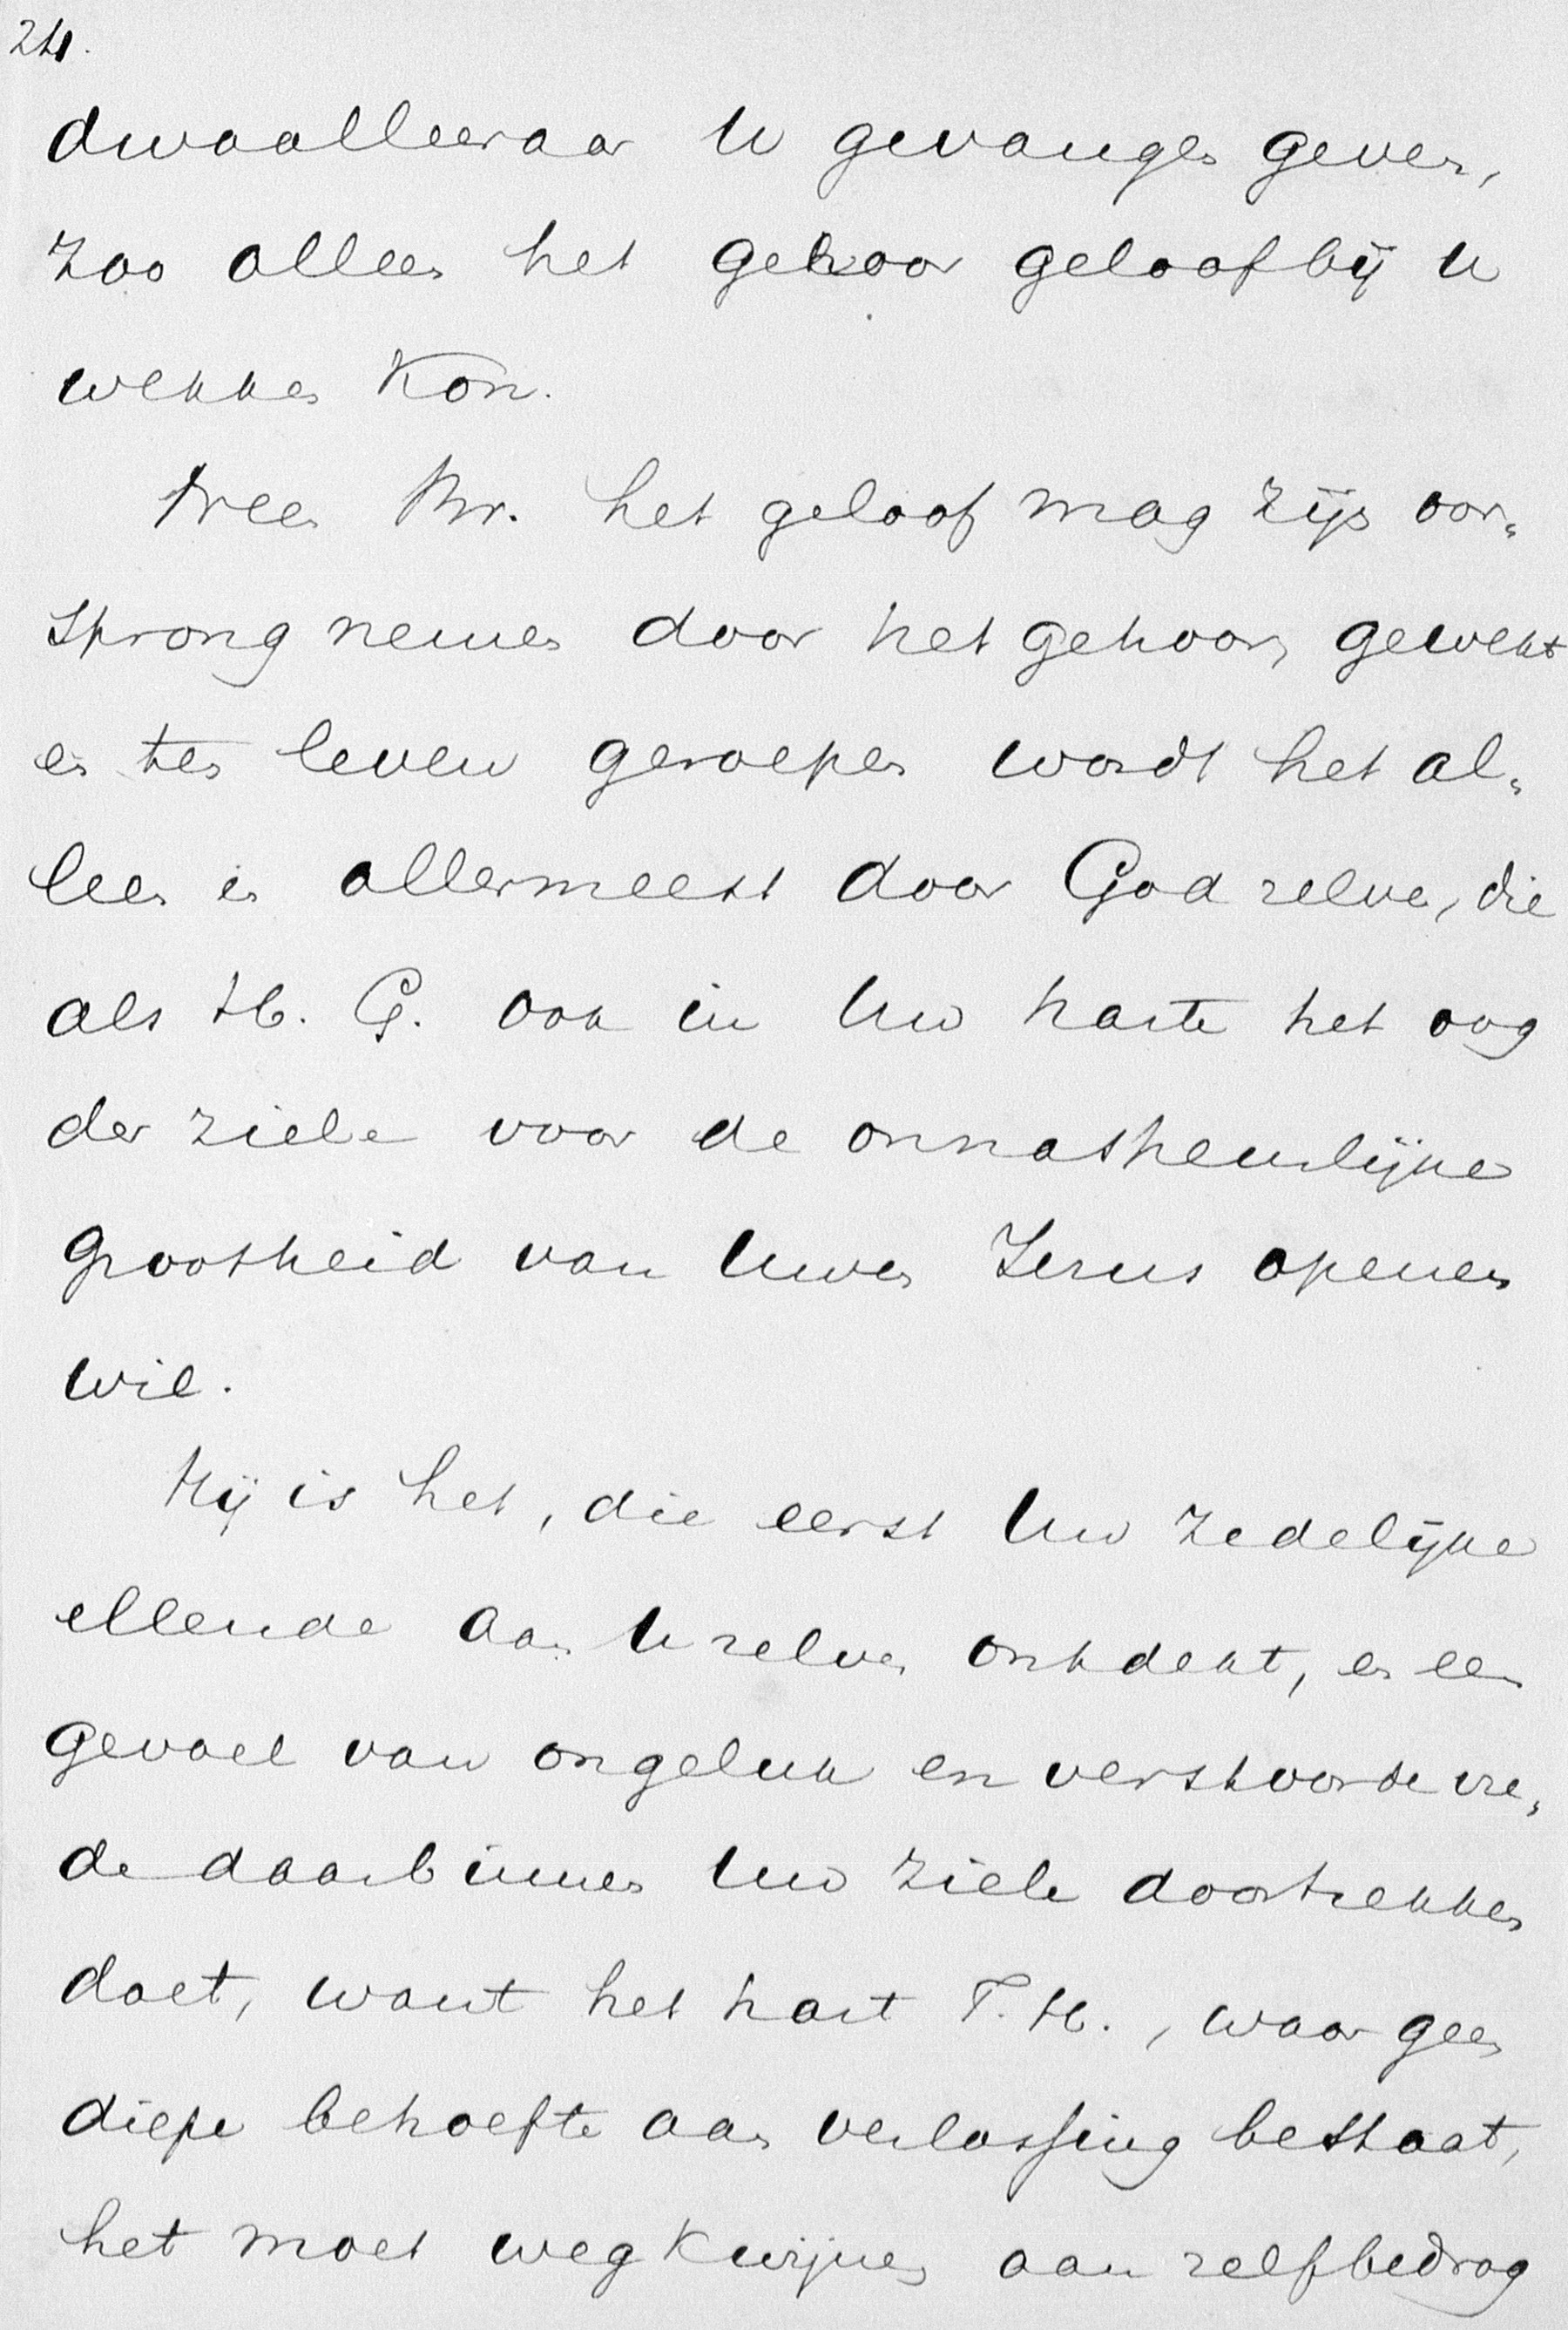 24.
dwaalleeraar U gevangen geven,
zoo alleen het gehoor geloof bij U
wekken kon.
Neen Br. het geloof mag zijn oor„
sprong nemen door het gehoor, gewekt
en ten leven geroepen wordt het al„
leen en allermeest door God zelven, die
als H. G. ook in Uw harte het oog
der ziele voor de onnaspeurlijke
grootheid van Uwen Jezus openen
wil.
Hij is het, die eerst Uw zedelijke
ellende aan U zelven ontdekt, en een
gevoel van ongeluk en verstoorde vre„
de daarbinnen Uw ziele doortrekken
doet, want het hart T. H., waar geen
diepe behoefte aan verlossing bestaat,
het moet wegkwijnen aan zelfbedrog